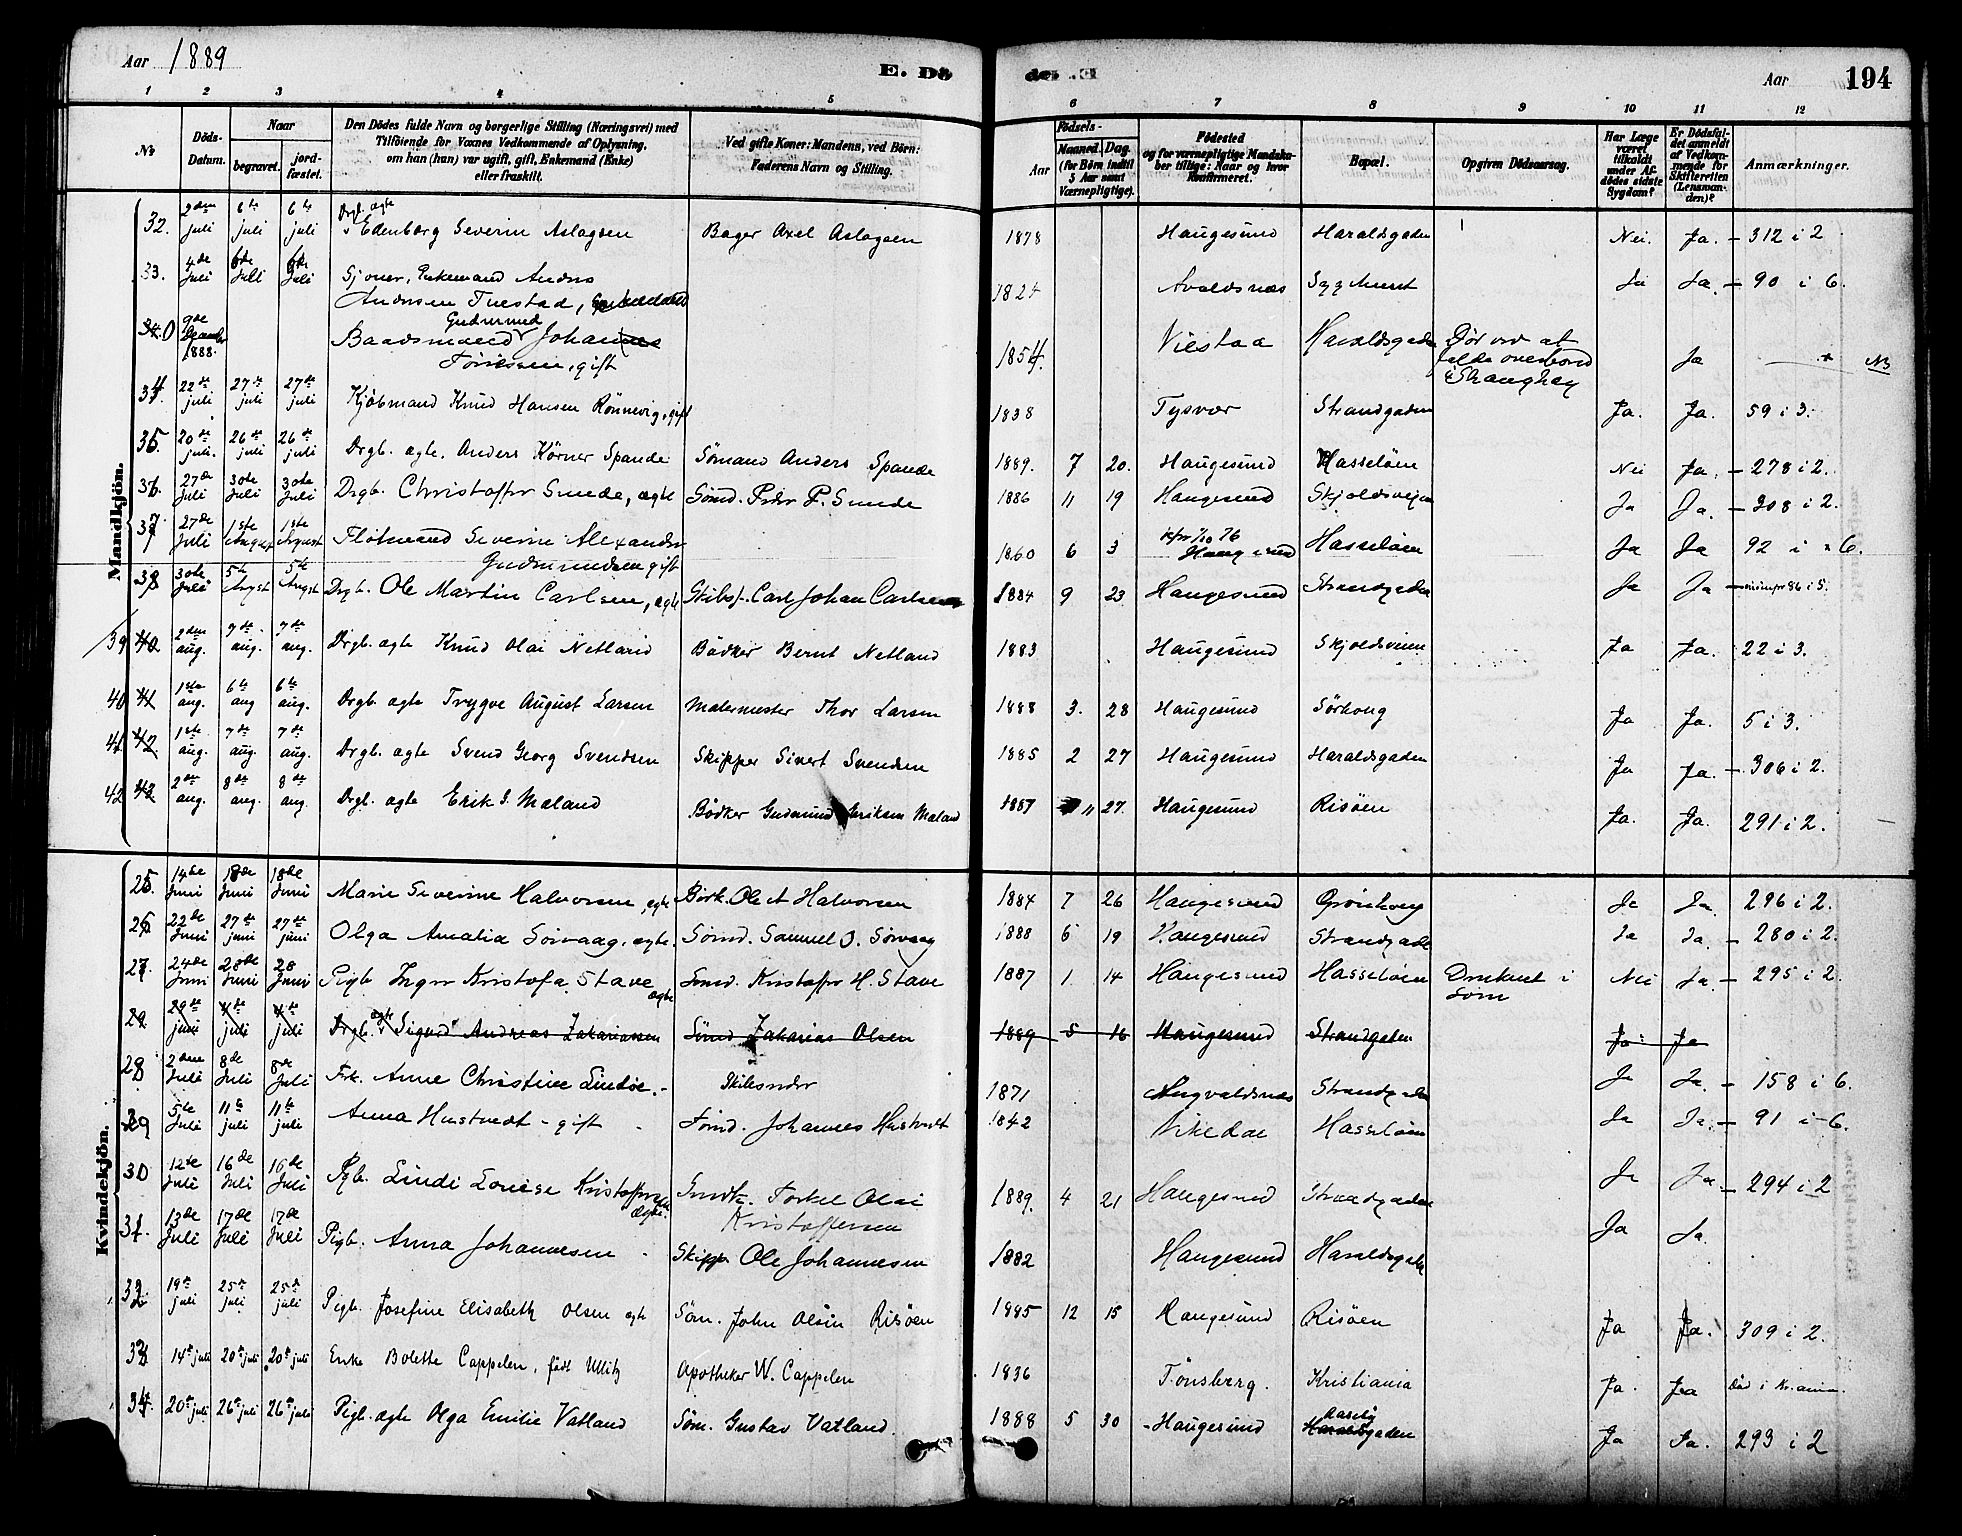 Aar 1889
E. Dö
1 2 3 4 5
No
Döds-Datum.
Naar
begravet.
jordfæstet.
Den Dödes fulde Navn og borgerlige Stilling (Næringsvei) med
Tilföiende for Voxnes Vedkommende af Oplysning,
om han (hun) var ugift, gift, Enkemand (Enke)
eller fraskilt.
Ved gifte Koner: Mandens, ved Börn:
Faderens Navn og Stilling.
Aar 194
6 7 8 9 10 11 12
Födsels-
Aar
Maaned. Dag.
(for Børn indtil
5 Aar samt
Værnepligtige).
Födested
og for værnepligtige Mandskaber tillige: Naar og hvor
konfirmeret.
Bopæl.
Opgiven Dödsaarsag.
Har Læge
været
tilkaldt
under Afdödes sidste
Sygdom?
Er Dödsfaldet anmeldt
af Vedkommende for
Skifteretten
(Lensmanden)?
Anmærkninger.
Mandkjön.
32. 2den juli 6te juli 6te juli Drgb. ægte Edenborg Severin Aslagsen Bager Axel Aslagsen 1878 Haugesund Haraldsgaden Nei. Ja. - 312 i 2
33. 4de Juli 6de Juli 6de Juli Enkemand Andrs
Andrsen 1824 Avaldsnæs Ja Ja. - 90 i 6.
0 9de 1888. Baadsmand Gudmund Johannes
gift 1854. Haraldsgaden Dør ved at
falde overbord
i Shanghay Ja NB
34 22de juli 27de juli 27de juli Kjöbmand Knud Hansen Rönnevig, gift 1838 Tysvær Strandgaden Ja. Ja. 59 i 3.
35. 20de juli. 26de juli 26de juli Drgb. ægte. Anders Körner Spande Sömand Anders Spande 1889. 7 20. Haugesund Hasselöen Nei Ja. - 278 i 2.
36. 27de Juli 30te Juli 30te Juli Drgb. Christoffer Sunde, ægte Sömd. Peder P. Sunde 1886 11 19 Haugesund Skjoldsvejen Ja Ja. - 308 i 2.
37 27de Juli 1ste August 1ste August Severin Alexander
Gudmundsen gift 1860 6 3 Haugesund Hasselöen Ja Ja 92 i 6.
38. 30te Juli 5te Augst 5te Augst Drgb. Ole Martin Carlsen, ægte Skibsf. Carl Johan Carlsen 1884 9 23 Haugesund Strandgaden Ja Ja 86 i 5.
39 40 2den aug. 7de aug. 7de aug. Drgb. ægte Knud Olai Netland Bödker Bernt Netland 1883 Haugesund Skjoldsveien Ja Ja. 22 i 3.
40 41 1ste aug. 6te aug 6te aug. Drgb. ægte Trygve August Larsen Malermester Thor Larsen 1888 3. 28 Haugesund Sörhoug Ja Ja. 5 i 3.
41 42. 1ste aug. 7de aug. 7de aug. Drgb. ægte Svend Georg Svendsen Skipper Sivert Svendsen 1885 2 27 Haugesund Haraldsgaden Ja Ja. - 306 i 2.
42 43 2de aug. 8de aug. 8de aug. Drgb. ægte Erik G. Maland Bödker Gudmund Eriksen Maland 1887 11 27. Haugesund Risöen Ja. Ja. 291 i 2.
Kvindekjön.
25. 14de Juni 18de Juni 18de Juni Marie Severine Halvorsen, ægte Ole Halvorsen 1884 7 26 Haugesund Grönhoug Ja Ja. 296 i 2.
26 22de Juni 27de juni 27de juni Olga Amalia Sörvaag, ægte. Sömd. Samuel O. Sörvaag 1888 19 Haugesund Strandgade Ja Ja. - 280 i 2.
27. 24de Juni 28de Juni 28 Juni Pigb. Inger Kristofa Stave ægte Sömd. Kristoffer H. Stave 1887 1 14 Haugesund Hasselöen Druknet i
Nei Ja. - 295 i 2.
29 29de juni 4de juli 4de juli Drgb. ægte Sigurd Andreas Zakariassen Sömd Zakarias Olsen 1889 5 16 Haugesund Strandgaden Ja Ja
28 2den Juli 8de Juli 8de Juli Frk. Anne Christine Lindöe. - Skibsreder 1871 Augvaldsnæs Strandgaden Ja Ja - 158 i 6.
29 5te Juli 11te juli 11te juli Anna Hustvedt - gift - Johannes Hustvedt 1842 Vikedal Hasselöen Ja Ja. - 91 i 6.
30 12te Juli 16de Juli 16de Juli Pgb. Lindi Lovise Kristoffersen ægte. Torkel Olai
Kristoffersen 1889. 4 21 Haugesund Strandgaden Ja Ja - 294 i 2
31. 13de Juli 17de Juli 17de Juli Pigb. Anna Johannesen - Skipper Ole Johannesen 1882 Haugesund Haraldsgade Ja Ja.
32 19de juli 25de juli 25de juli Pigb. Josefine Elisabeth Olsen ægte Söm. John Olsen Risöen 1885 12 15 Haugesund Risöen Ja Ja. 309 i 2.
33 14de juli 20de juli 20de juli Enke Bolette Cappelen, född Ullitz Apotheker W. Cappelen 1836 Tönsberg. Kristiania Ja. Ja Död i Kr.ania.
34. 20de juli 26de juli 26de juli Pigb. ægte Olga Emilie Vatland Söm. Gustav Vatland. 1888 5 30 - Haugesund Haraldsgaden Ja Ja. 293 i 2